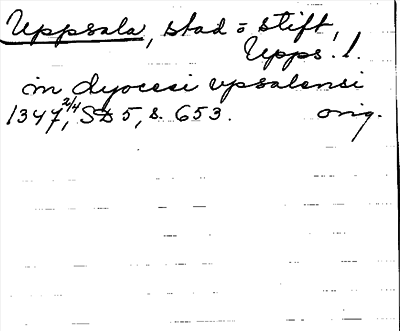 Uppsala, stad o stift,
Upps. l.
in dyocesi upsalensi
1347 2/4, SD 5, s. 653. orig.